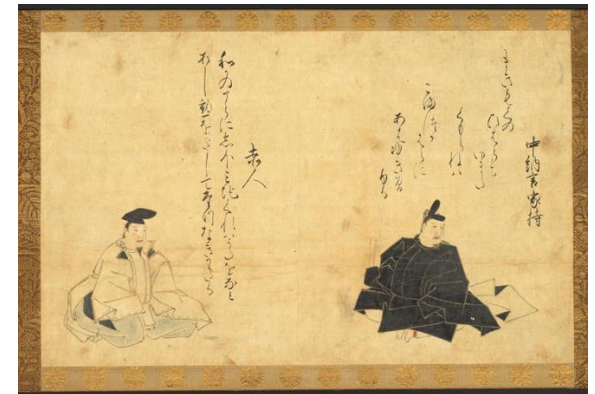 中納言家持
まきもくの
ひはらも
いまた
くもらねは
こ松か
はらに
あはゆきそ
ふる
赤人
和かのうらに志ほみちくれはかたをなみ
あし邊をさしてたつなきわたる